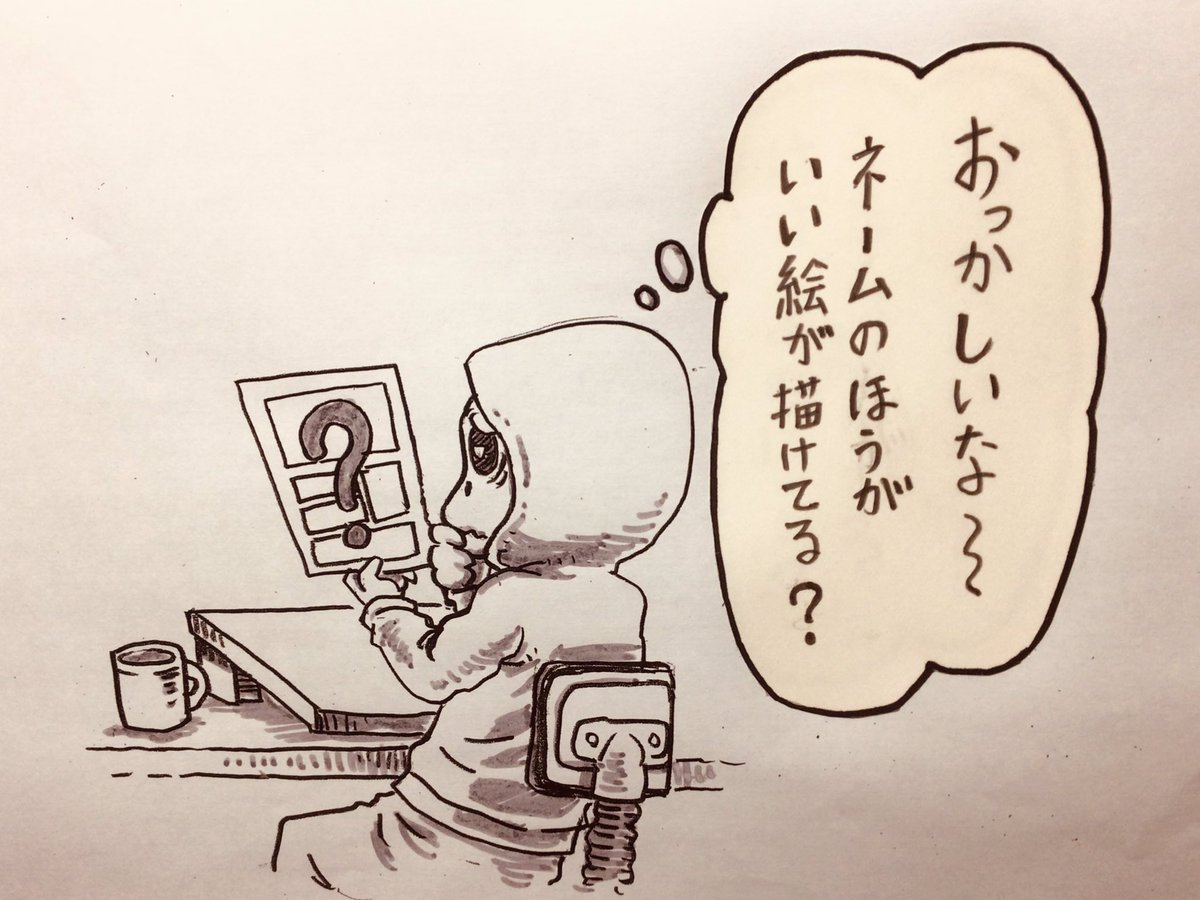 おっかしいな〜〜
ネームのほうが
いい絵が描けてる?
?